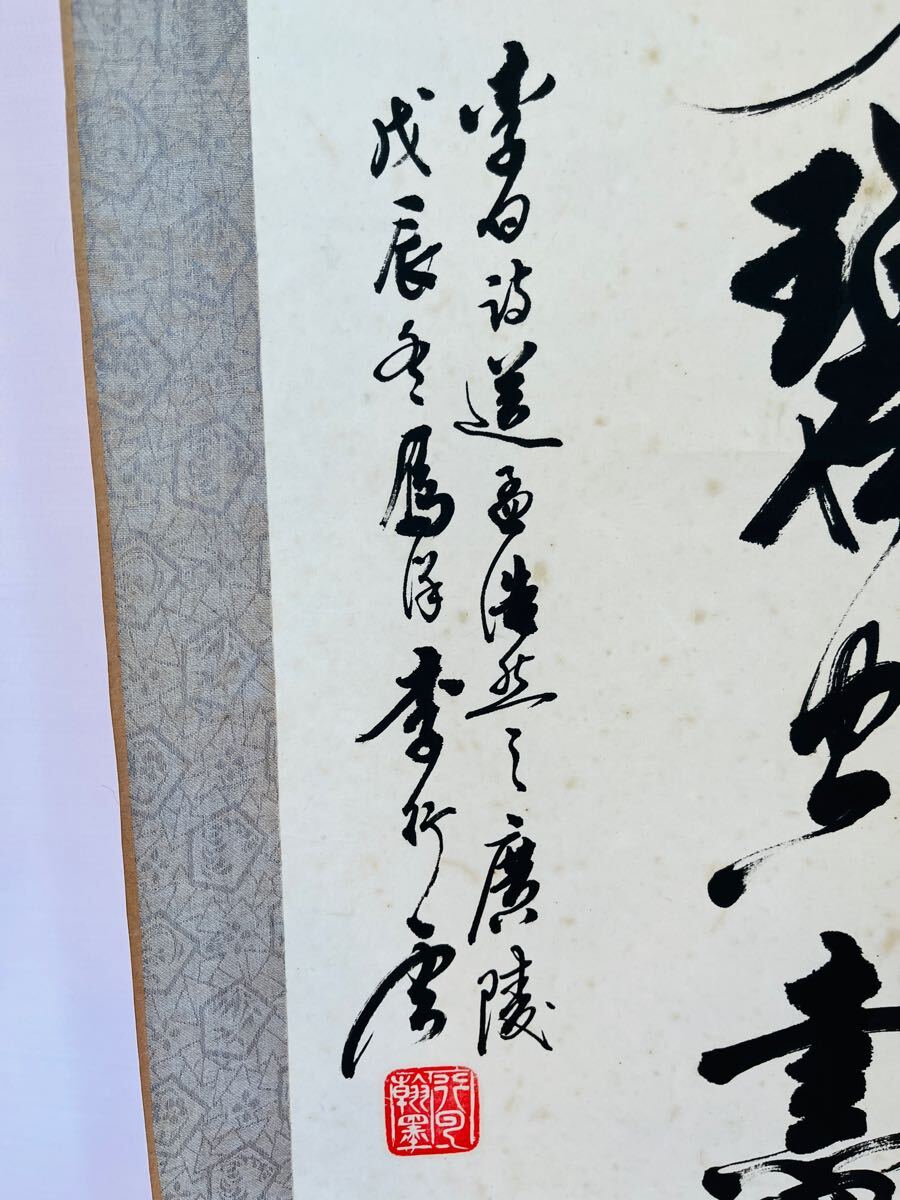 碧空盡
李白詩送孟浩然之廣陵
戊辰冬馮祥李行雲